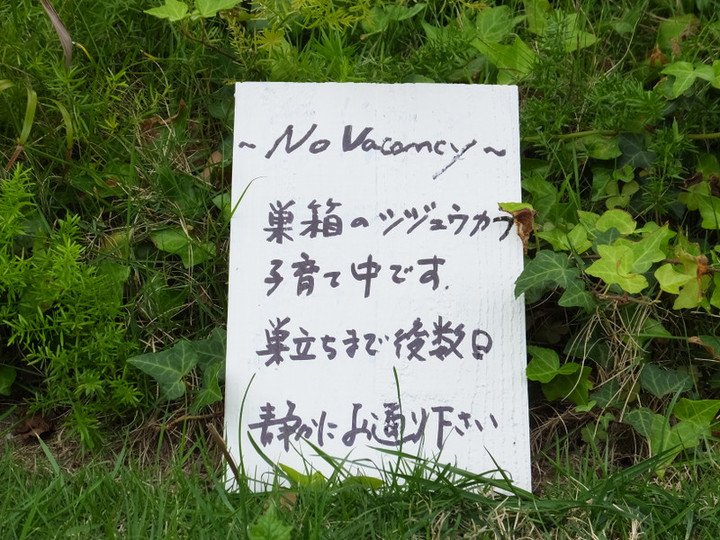 ~ No Vacancy ~
巣箱のシジュウカラ
子育て中です.
巣立ちまで後数日
静かにお通り下さい